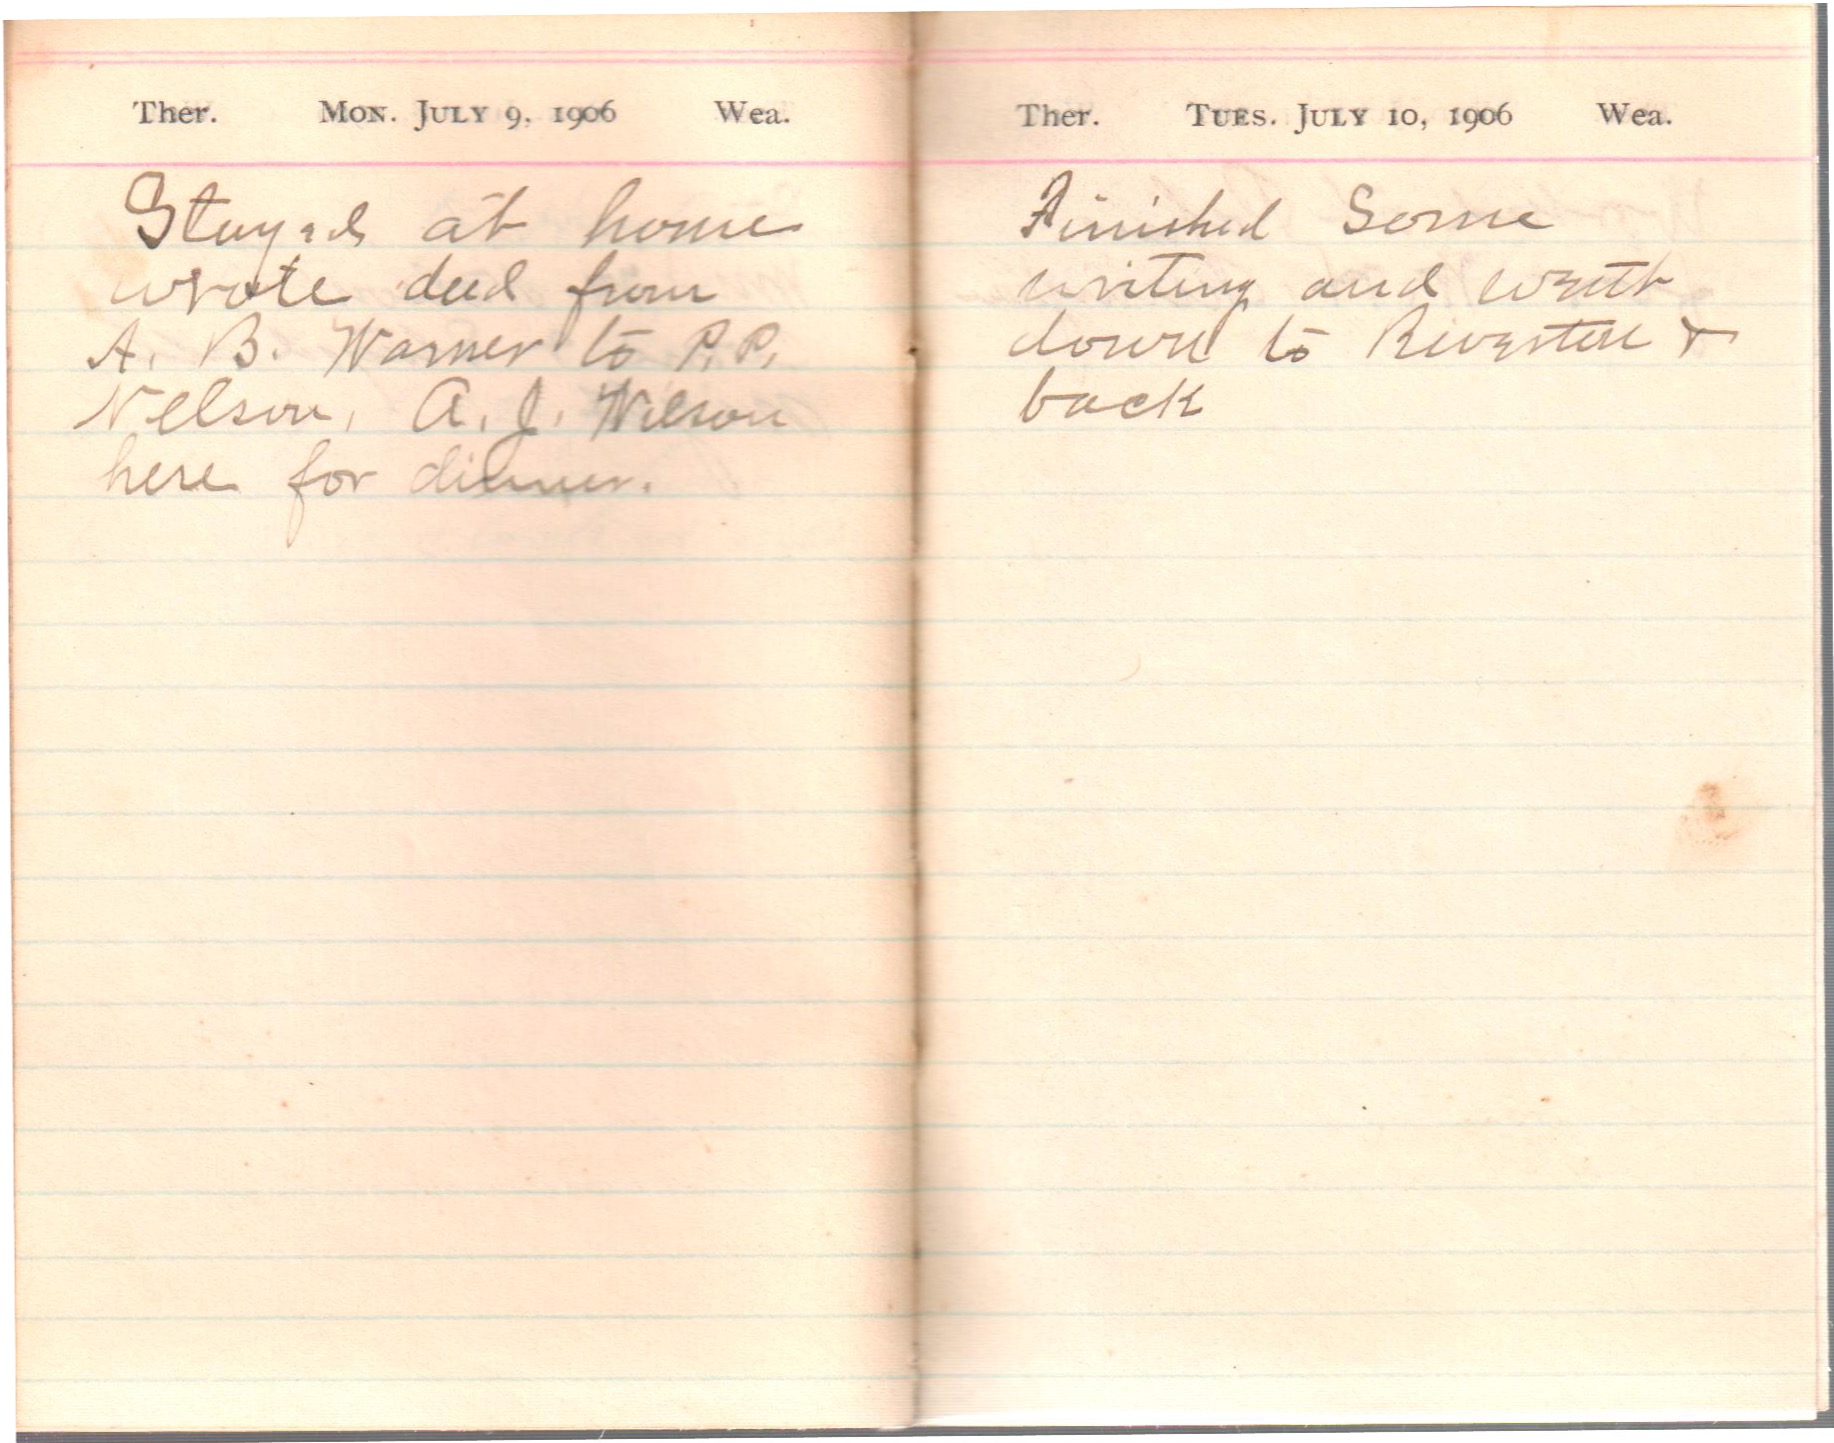 Ther. MON. JULY 9, 1906 Wea.
Stayed at home
wrote deed from
A. B. Warner to P. P.
Nelson, A. J. Wilson
here for dinner.
Ther. TUES. JULY 10, 1906 Wea.
Finished Some
writing and went
down to Riverton &
back